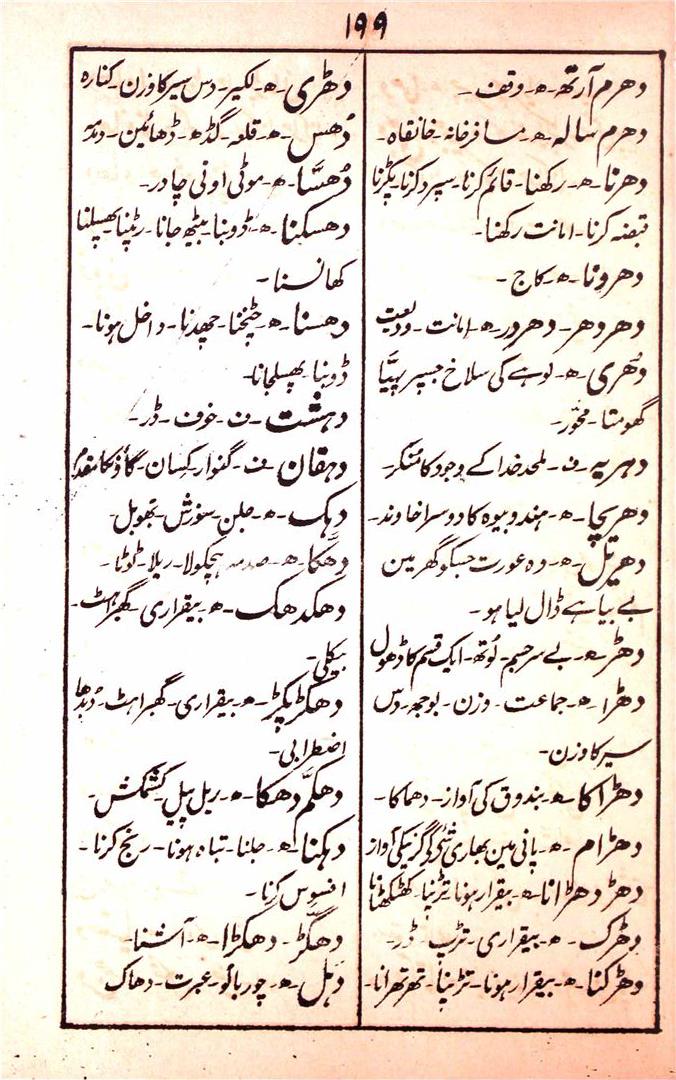 ۱۹۹
دھرم آرتھ - ھ - وقف -
دھرم سالہ - ھ - مسافرخانہ - خانقاہ -
دھرنا - ھ - رکھنا - قائم کرنا - سپرد کرنا - پکڑنا
قبضہ کرنا - امانت رکھنا -
دھرونا - ھ - کاج -
دھر دھر - دھرور - ھ - امانت - ودیعت
دُھری - ھ - لوہے کی سلاخ جسپر پہیّا
گھومتا - محوّر -
دہریہ - ف - ملحد خدا کے وجود کا منکر -
دھریچا - ھ - ہندو بیوہ کا دوسرا خاوند -
دھریل - ھ - وہ عورت جسکو گھر مین
بے بیاہے ڈال لیا ہو -
دھڑ - ھ - بے سر جسم - لوتھ - ایک قسم کا ڈھول
دھڑا - ھ - جماعت - وزن - بوجھ - دس
سیر کا وزن -
دھڑاکا - ھ - بندوق کی آواز - دھماکا -
دھڑام - ھ - پانی مین بھاری شئی کے گرنیکی آواز
دھڑ دھڑانا - ھ - بیقرار ہونا - تڑپنا - کھٹکھٹانا
دھڑک - ھ - بیقراری - تڑپ - ڈر -
دھڑکنا - ھ - بیقرار ہونا - تڑپنا - تھرتھرانا -
دھڑی - ھ - لکیر - دس سیر کا وزن - کنارہ
دُھس - ھ - قلعہ - گڈھ - ڈھائین -
دُھسّا - ھ - موٹی اونی چادر -
دھسکنا - ھ - ڈوبنا - بیٹھ جانا - رپٹنا - پھسلنا
کھانسنا -
دھسنا - ھ - چٹخنا - چھدنا - داخل ہونا -
ڈوبنا - پھسلجانا -
دہشت - ف - خوف - ڈر -
دہقان - ف - گنوار - کسان - گاؤنکا مقدم
دہک - ھ - جلن - سوزش - بھوبل -
دھکّا - ھ - صدمہ - ہچکولا - ریلا - ٹوٹا -
دھکدھک - ھ - بیقراری - گھبراہٹ -
بیکلی -
دھکڑ پکڑ - ھ - بیقراری - گھبراہٹ - دُبدھا
اضطرابی -
دھکّم دھکا - ھ - ریل پیل - کشمکش -
دہکنا - ھ - جلنا - تباہ ہونا - رنج کرنا -
افسوس کرنا -
دھگّڑ - دھگڑا - ھ - آشنا -
دہل - ھ - چور بالو - عبرت - دھاک